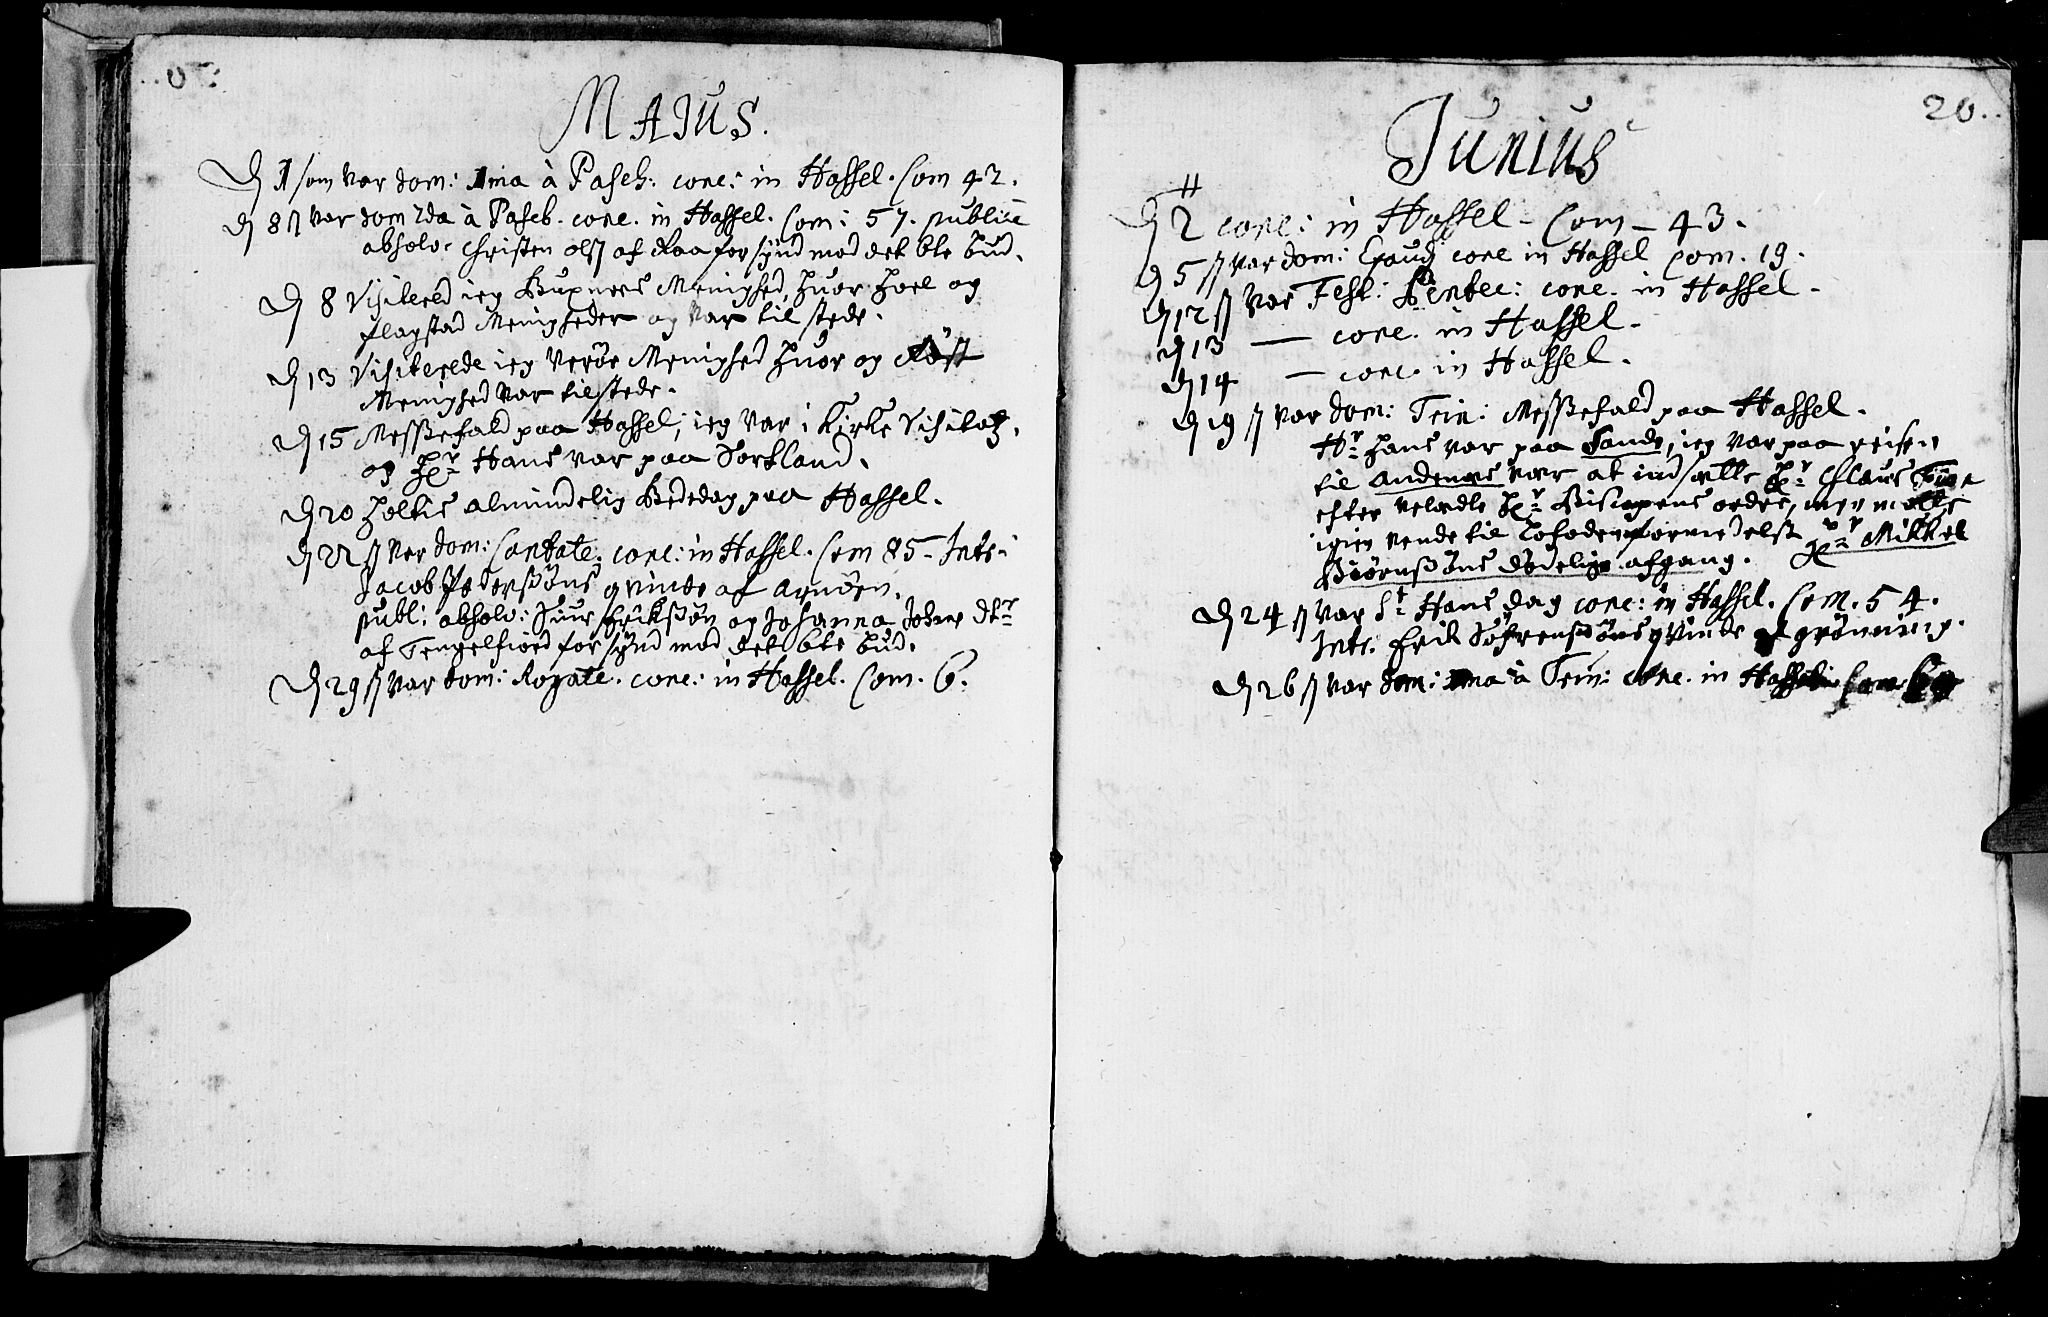 MAJUS.
D 1 som var dom: 1ma à Pasch: conc: in Hassel. Com 42.
D 8 var dom 2da à Pasch. conc. in Hassel. Com: 57. publice
absolv. Christen ols af Raa for synd mod det 6te bud.
D 8 Visitered ieg Buxnees Menighed, huor hoel og
flagstad Menigheder og var til stede.
D 13 Visiterede ieg Verøe Menighed huor og Röst
Menighed var tilstede.
D 15 Messefald paa Hassel, ieg var i Kirke Visitatz,
og Hr Hans var paa Sortland.
D 20 holtes almindelig Bededag paa Hassel.
D 22 var dom: Cantate, conc: in Hassel. Com 85. Intr:
Jacob Pedersøns qvinde af Arnøen.
publ: absolv: Siuur Erikssøn og Johanna Johns dtr
af Tengelfiord for synd mod det 6te bud.
D 29 var dom: Rogate. conc: in Hassel. Com. 6.
20.
Junius
D 2 conc: in Hassel - Com - 43.
D 5 var dom: Exaudi conc in Hassel Com. 19.
D 12 var Fest: Pentec: conc. in Hassel.
D 13 — conc. in Hassel.
D 14 — conc. in Hassel.
D 19 var dom: Trin: Messefald paa Hassel.
Hr Hans var paa Sands, ieg var paa reisen
til Andenees var at indsætte Hr Claus
efter velædle Hr Biscopens ordre, men motte
igien vende til Lofoden formedelst Hr Mikkel
Biörnsöns dödelige afgang.
D 24 var St Hans dag conc: in Hassel. Com. 54.
Intr. Erik Söfrensöns qvinde af grönning.
D 26 var dom: 1ma à Trin: conc. in Hassel. Com